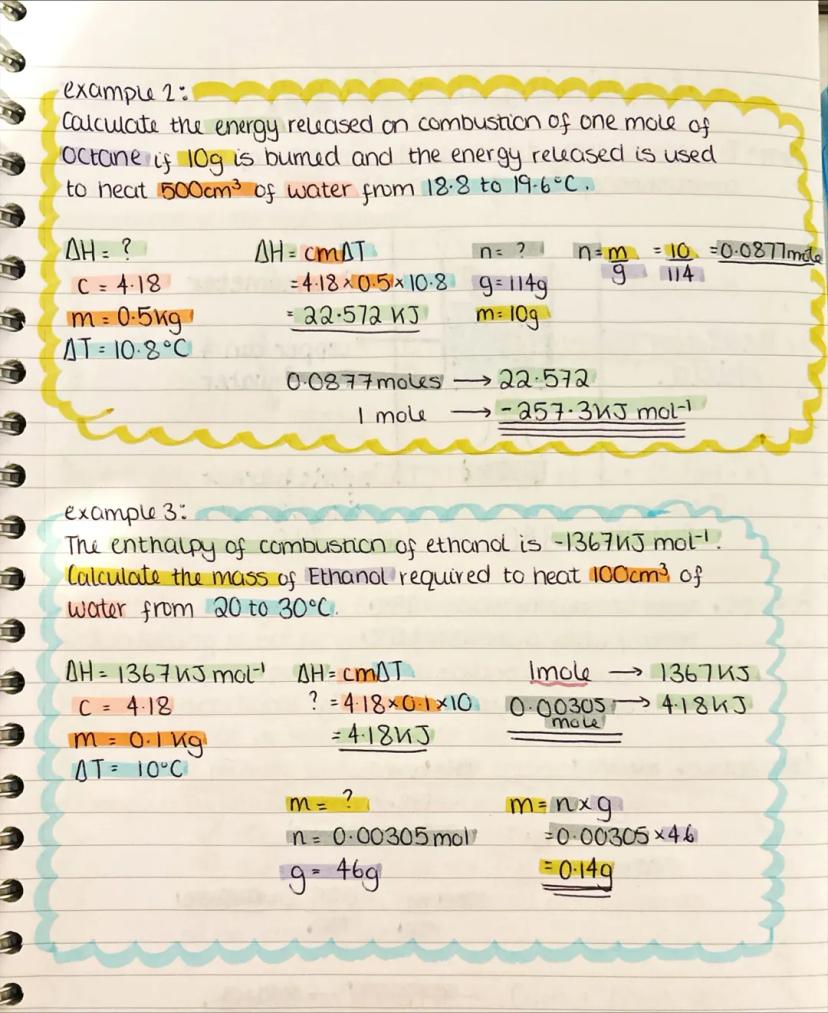 example 2:
Calculate the energy released on combustion of one mole of
octane if 10g is burned and the energy released is used
to heat 500cm³ of water from 18.8 to 19.6°C.
ΔH = ? ΔH = cmΔT n = ? n = m/g = 10/114 = 0.0877mole
c = 4.18 = 4.18 × 0.5 × 10.8 g = 114g
m = 0.5kg = 22.572 KJ m = 10g
ΔT = 10.8°C
0.0877moles → 22.572
1 mole → -257.3KJ mol⁻¹
example 3:
The enthalpy of combustion of ethanol is -1367KJ mol⁻¹.
Calculate the mass of Ethanol required to heat 100cm³ of
water from 20 to 30°C.
ΔH = 1367KJ mol⁻¹ ΔH = cmΔT 1mole → 1367KJ
c = 4.18 ? = 4.18 × 0.1 × 10 0.00305 mole → 4.18KJ
m = 0.1 Kg = 4.18KJ
ΔT = 10°C
m = ? m = n × g
n = 0.00305mol = 0.00305 × 46
g = 46g = 0.14g